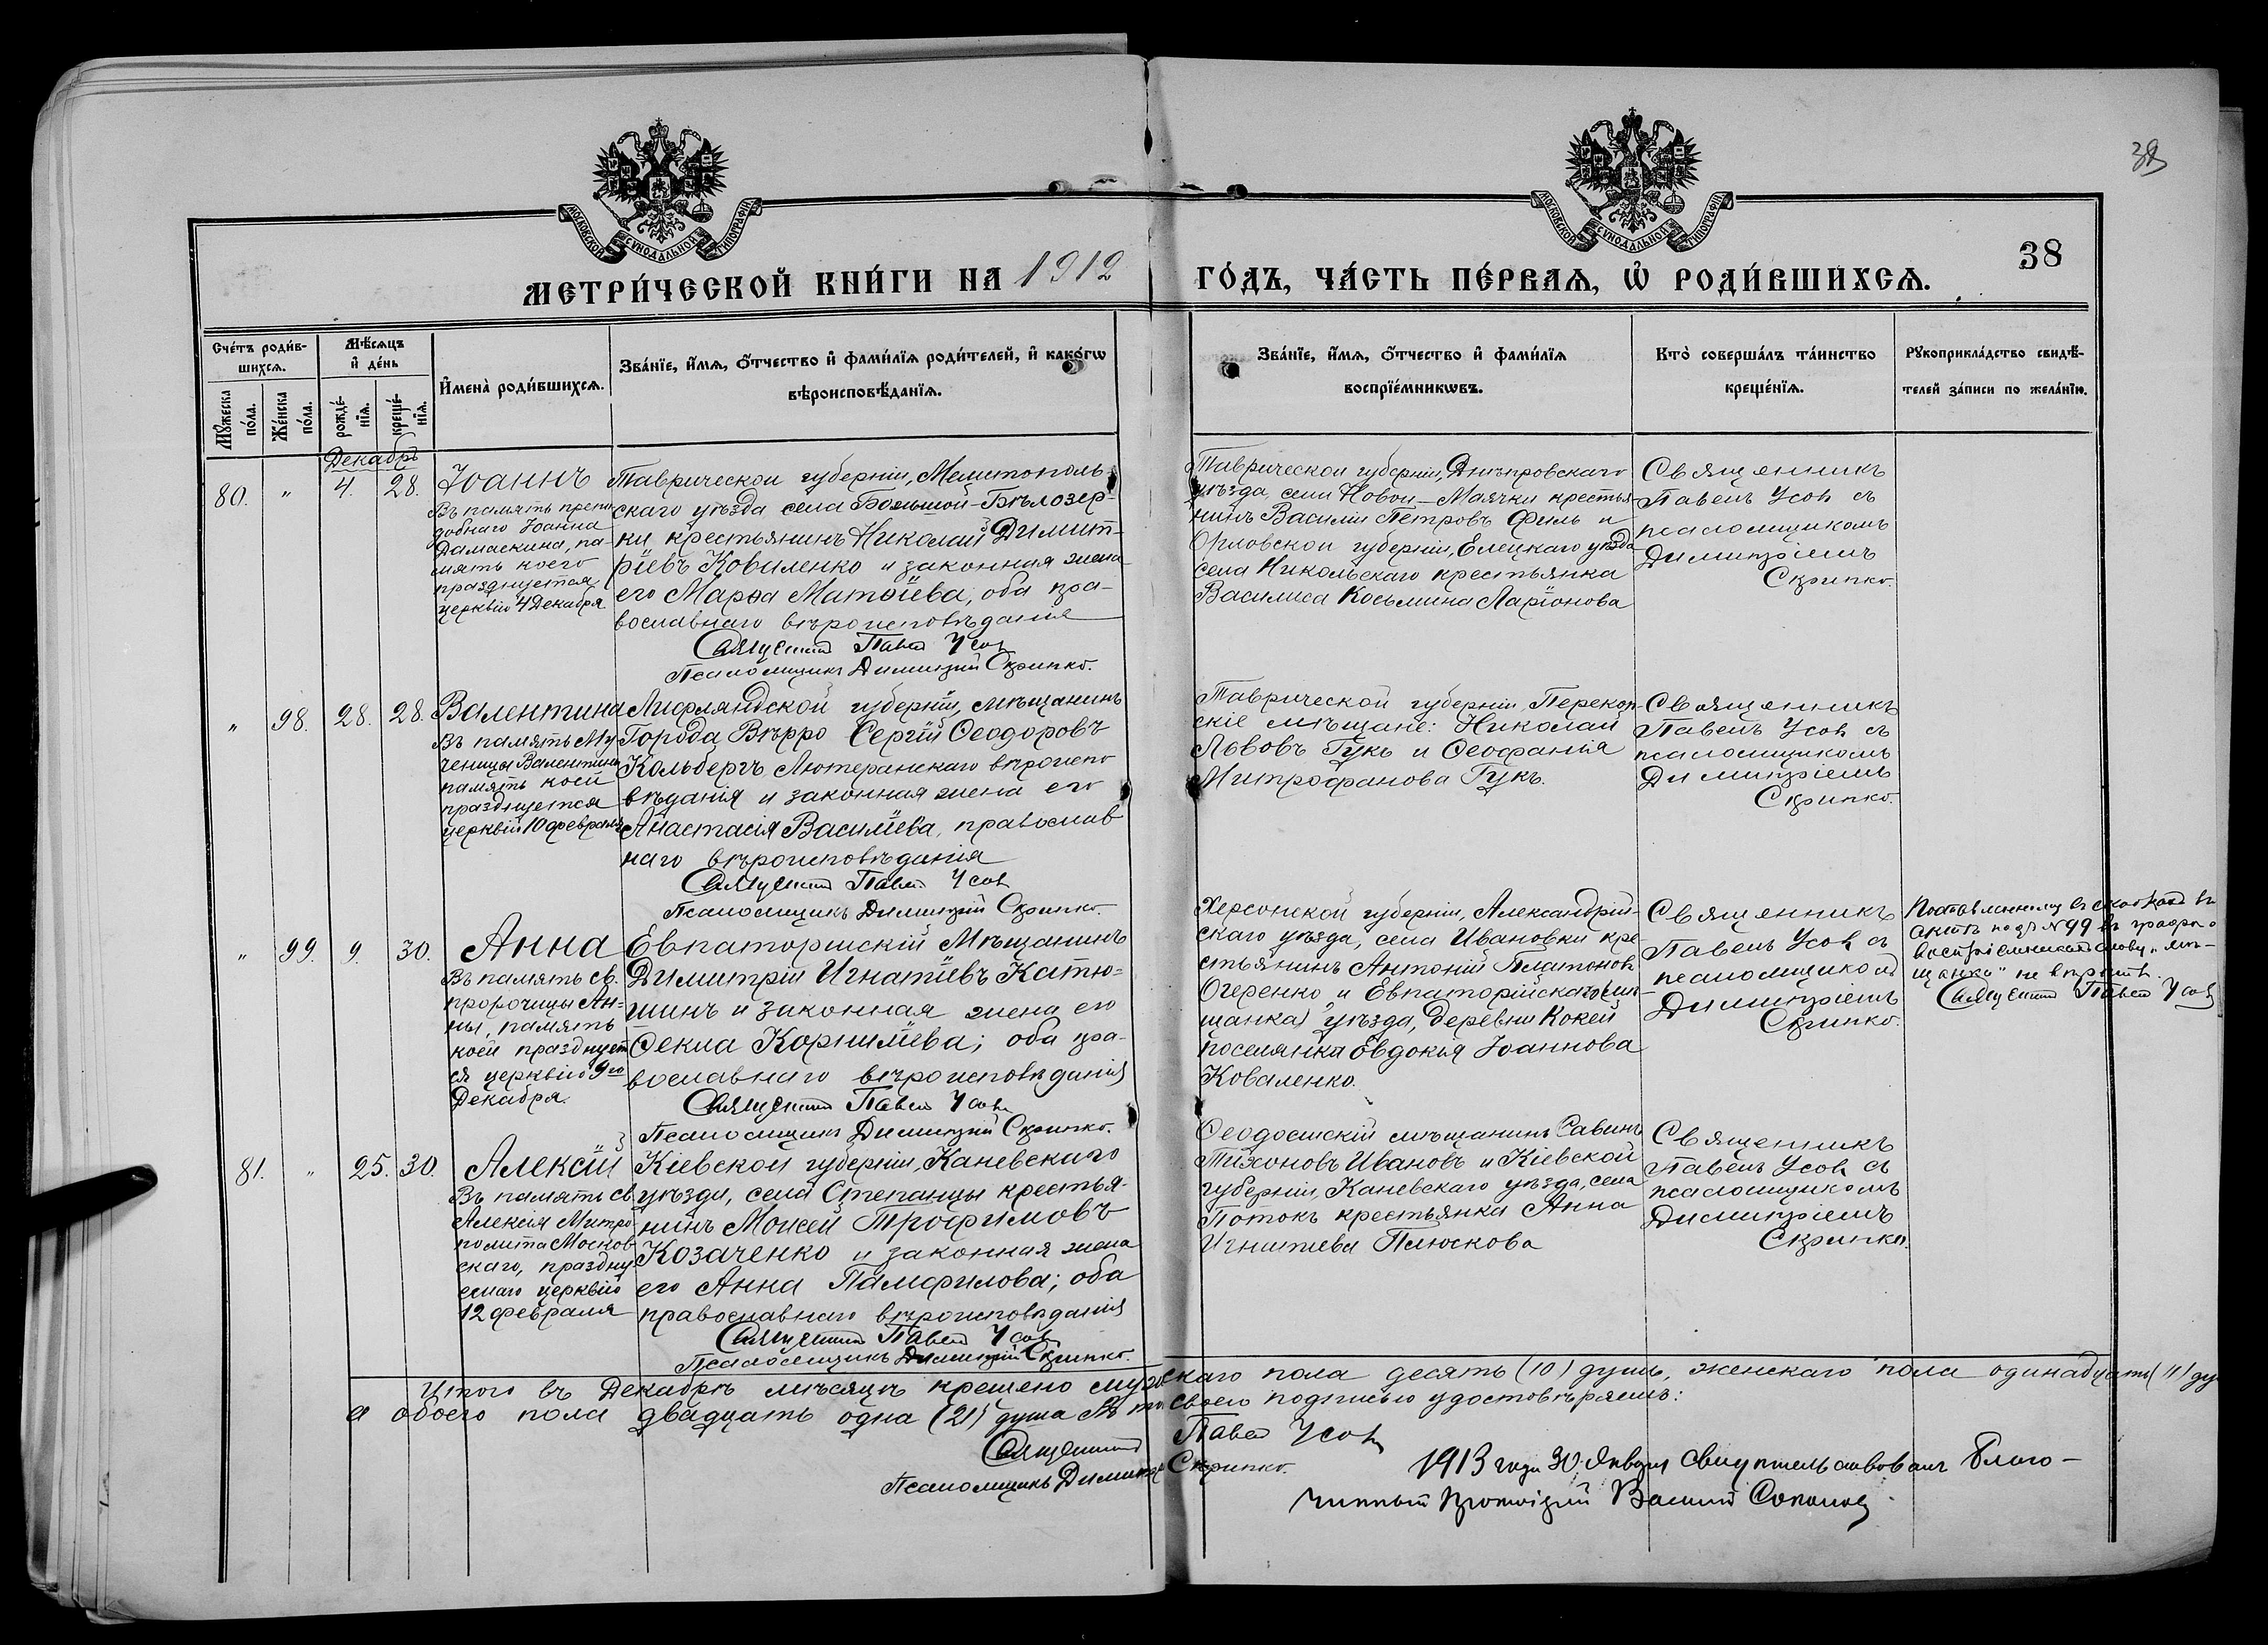 38
38
МОСКОВСКОЙ СѴНОДАЛЬНОЙ ТИПОГРАФІИ
МОСКОВСКОЙ СѴНОДАЛЬНОЙ ТИПОГРАФІИ
МЕТРИ́ЧЕСКОЙ КНИ́ГИ НА 1912 ГО́ДЪ, ЧА́СТЬ ПЕ́РВАѦ, Ѡ҆ РОДИ́ВШИХСѦ.
Сче́тъ роди́в-
шихсѧ.
Мѣ́сѧцъ
и҆ де́нь
Мꙋ́жеска
по́ла.
Же́нска
по́ла.
рожде́-
нїѧ.
креще́-
нїѧ.
И҆мена̀ роди́вшихсѧ.
Зва́нїе, и҆́мѧ, ѻ҆́тчество и҆ фами́лїѧ роди́телей, и҆ како́гѡ
вѣроисповѣ́данїѧ.
Зва́нїе, и҆́мѧ, ѻ҆́тчество и҆ фами́лїѧ
воспрїе́мникѡвъ.
Кто̀ соверша́лъ та́инство
креще́нїѧ.
Рꙋкоприкла́дство свидѣ́-
телей за́писи по жела́нїю.
Декабрь
80. " 4. 28.
Іоаннъ
Въ память препо
добнаго Іоанна
Дамаскина, па-
мять коего
празднуется
церквію 4 Декабря
Таврической губерніи, Мелитополь
скаго уѣзда села Большой-Бѣлозер-
ки крестьянинъ Николай Димит-
ріевъ Коваленко и законная жена
его Марѳа Матѳіева, оба пра-
вославнаго вѣроисповѣданія
Священникъ Павелъ Усовъ
Псаломщикъ Димитрій Скрипко.
Таврической губерніи, Днѣпровскаго
уѣзда, села Новой-Маячки крестья
нинъ Василій Петровъ Филь и
Орловской губерніи, Елецкаго уѣзда
села Никольскаго крестьянка
Василиса Косьмина Ларіонова
Священникъ
Павелъ Усовъ съ
псаломщикомъ
Димитріемъ
Скрипко.
" 98. 28. 28.
Валентина
Въ память Му
ченицы Валентины
память коей
празднуется
церквій 10 февраля
Лифляндской губерніи, мѣщанинъ
Города Вѣрро Сергій Ѳеодоровъ
Кольбергъ Лютеранскаго вѣроиспо
вѣданія и законная жена его
Анастасія Василіева, православ
наго вѣроисповѣданія
Священникъ Павелъ Усовъ
Псаломщикъ Димитрій Скрипко.
Таврической губерніи Перекоп-
скіе мѣщане: Николай
Львовъ Гукъ и Ѳеофанія
Митрофанова Гукъ.
Священникъ
Павелъ Усовъ съ
псаломщикомъ
Димитріемъ
Скрипко.
" 99. 9. 30.
Анна
Въ память св.
пророчицы Ан-
ны, память
коей празднует
ся церквію 9го
Декабря.
Евпаторійскій Мѣщанинъ
Димитрій Игнатіевъ Катю-
шинъ и законная жена его
Ѳекла Корниліева; оба пра-
вославнаго вѣроисповѣданія
Священникъ Павелъ Усовъ
Псаломщикъ Димитрій Скрипко.
Херсонской губерніи, Александрій-
скаго уѣзда, села Ивановки кре
стьянинъ Антоній Платоновъ
Огеренко и Евпаторійскаго (мѣ-
щанка) уѣзда, деревни Кокей
поселянка Евдокія Іоаннова
Коваленко.
Священникъ
Павелъ Усовъ съ
псаломщикомъ
Димитріемъ
Скрипко.
Поставленному въ скобкахъ въ
актѣ подъ № 99 въ графѣ о
воспріемникахъ слову "мѣ-
щанка" не вѣрить.
Священникъ Павелъ Усовъ
81. " 25. 30.
Алексій
Въ память св.
Алексія Митро-
полита Москов
скаго, праздну-
емаго церквію
12 февраля
Кіевской губерніи, Каневскаго
уѣзда, села Степанцы крестья-
нинъ Моисей Трофимовъ
Козаченко и законная жена
его Анна Памфилова; оба
православнаго вѣроисповѣданія
Священникъ Павелъ Усовъ
Псаломщикъ Димитрій Скрипко.
Ѳеодосійскій мѣщанинъ Савинъ
Тихоновъ Ивановъ и Кіевской
губерніи, Каневскаго уѣзда, села
Потокъ крестьянка Анна
Игнатіева Плюскова
Священникъ
Павелъ Усовъ съ
псаломщикомъ
Димитріемъ
Скрипко.
Итого въ Декабрѣ мѣсяцѣ крещено мужскаго пола десять (10) душъ, женскаго пола одинадцать (11) ду
а обоего пола двадцать одна (21) душа своею подписью удостовѣряемъ:
Священникъ Павелъ Усовъ
Псаломщикъ Димитрій Скрипко.
1913 года 30 Января свидѣтельствовалъ Благо-
чинный Протоіерей Василій